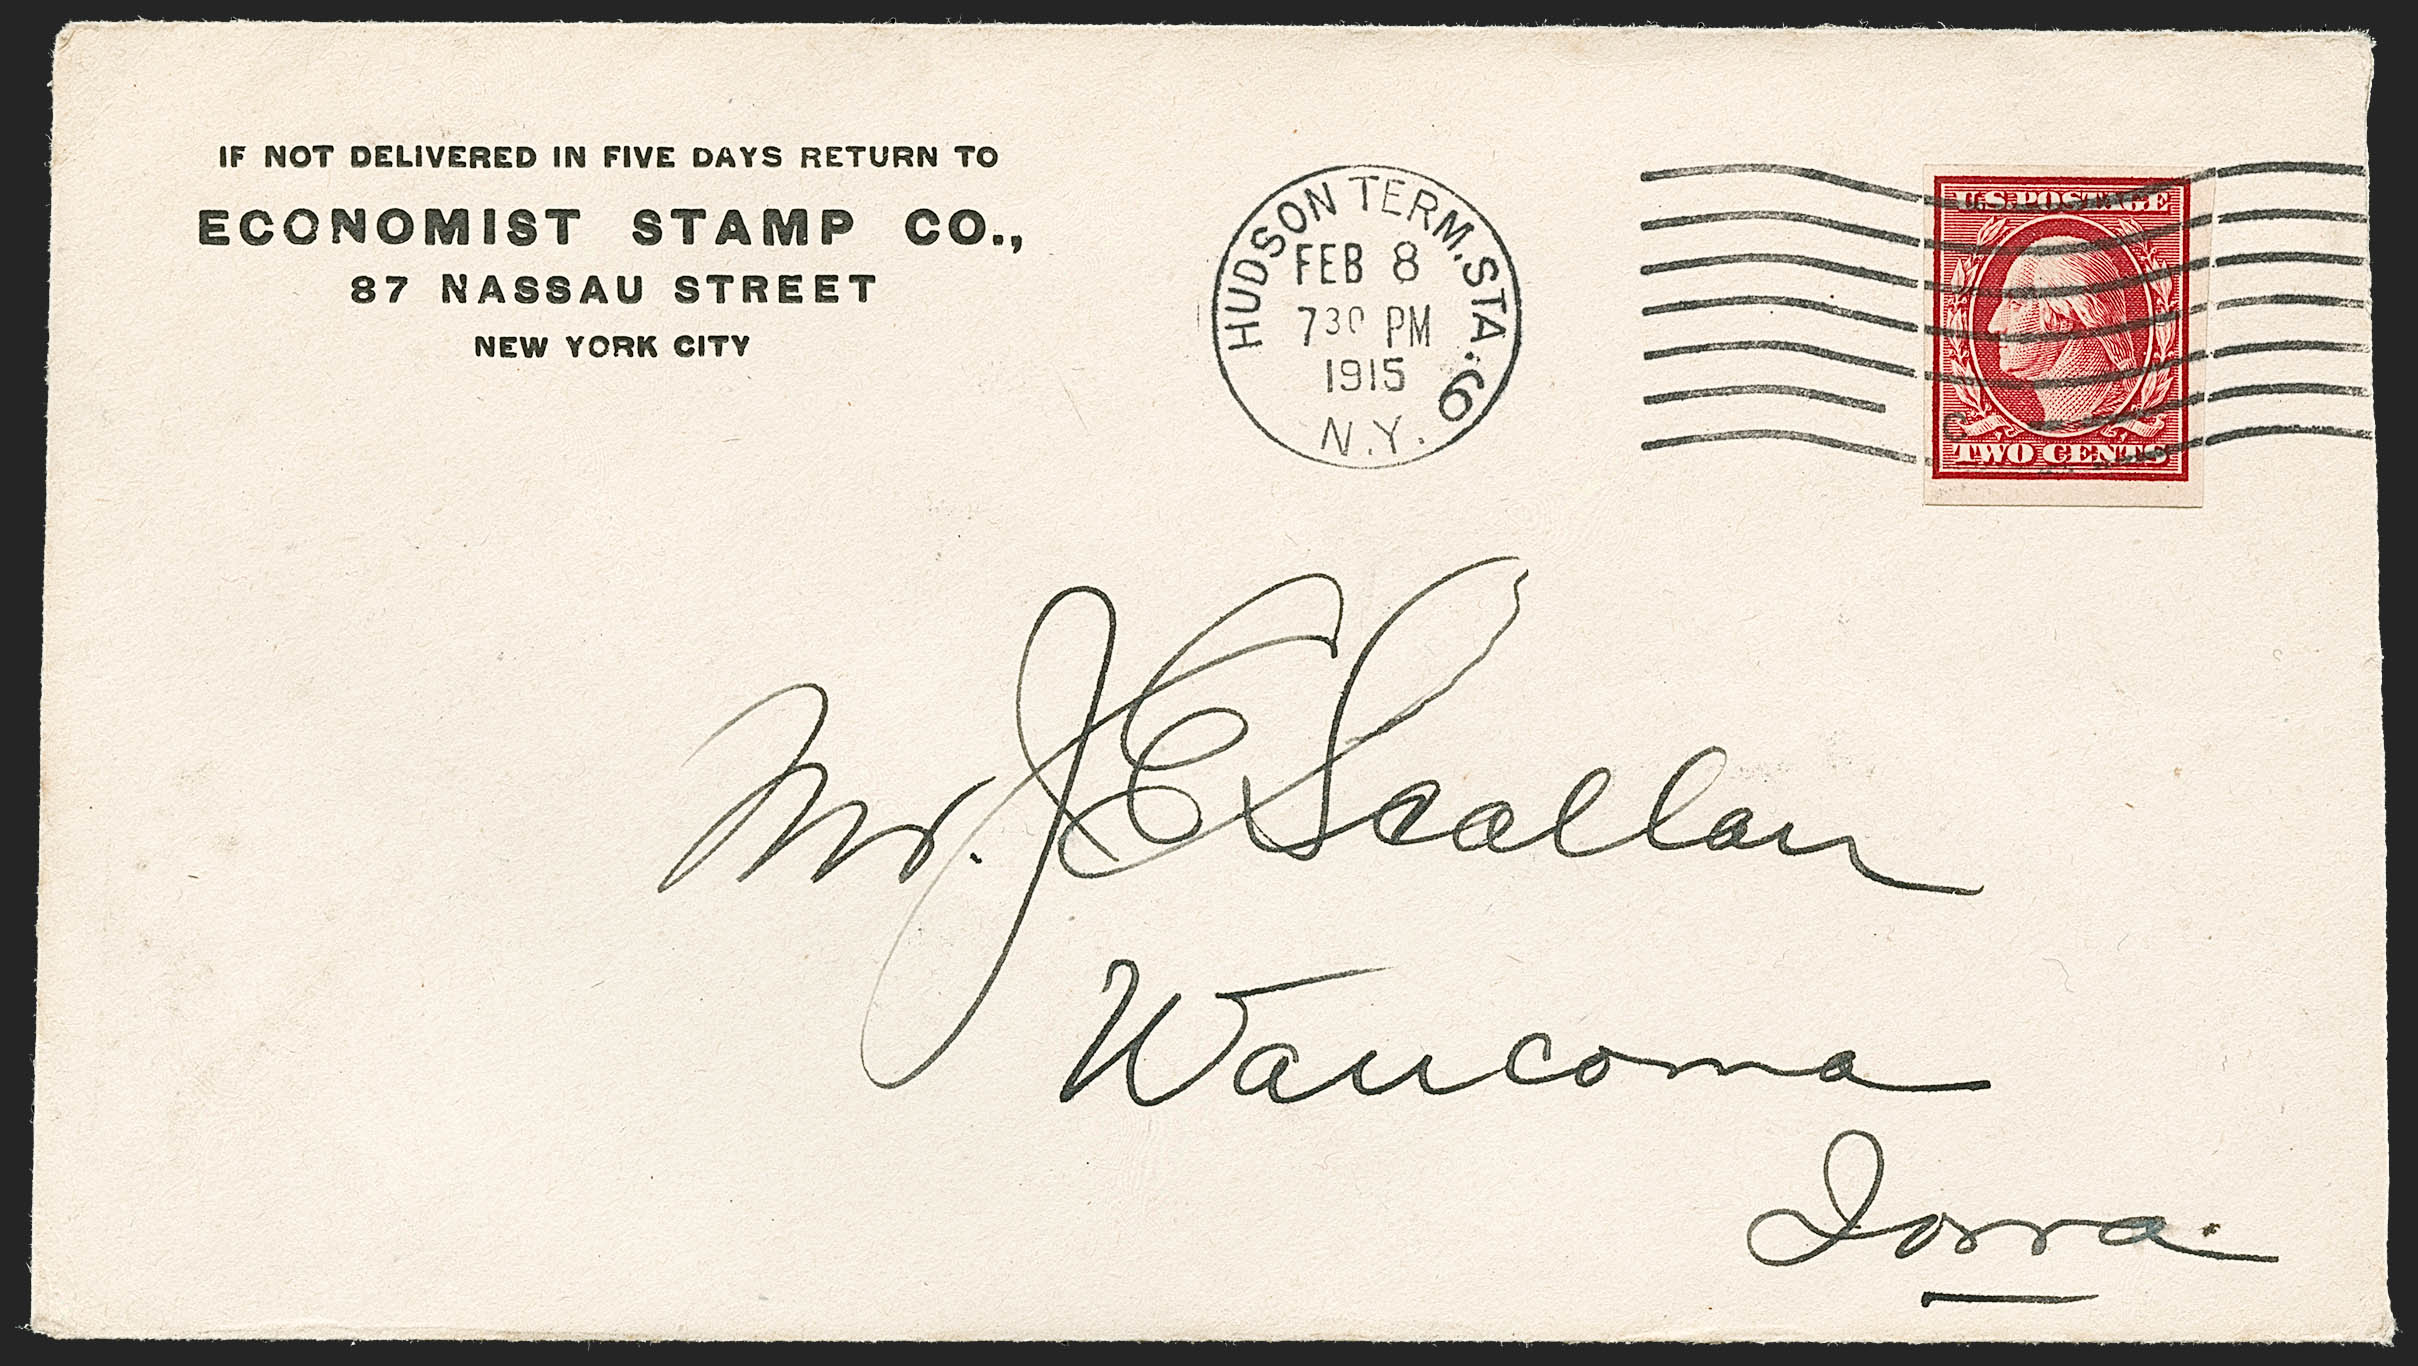 IF NOT DELIVERED IN FIVE DAYS RETURN TO
ECONOMIST STAMP CO.,
87 NASSAU STREET
NEW YORK CITY
HUDSON TERM. STA. 6
FEB 8
7 30 PM
1915
N.Y.
U.S. POSTAGE
TWO CENTS
Mr. J E Scallan
Waucoma
Iowa.